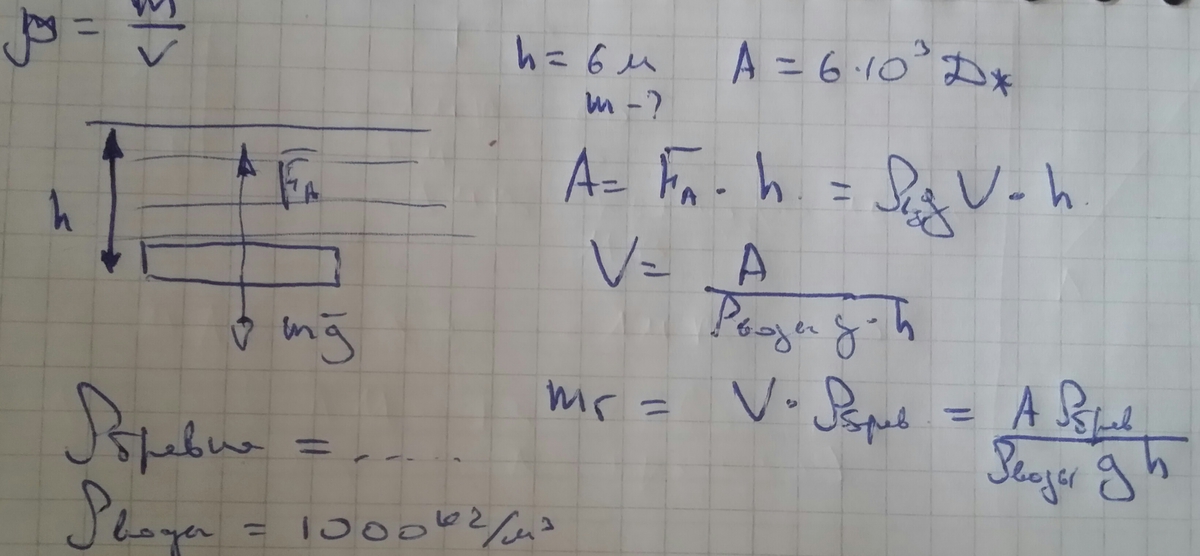 ρ = m/V
h = 6 м   A = 6·10³ Дж
m - ?
F̅A
h
A = F̅A · h = ρ g V · h
V = A / (ρводы g · h)
mg̅
mг = V · ρбрев = A ρбрев / (ρводы g h)
ρбревна = .....
ρводы = 1000 кг/м³